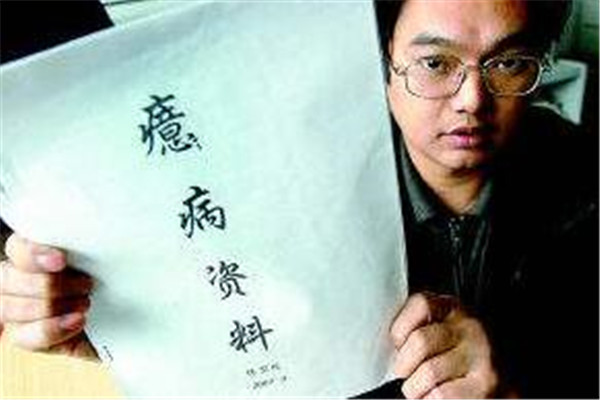 癔病资料